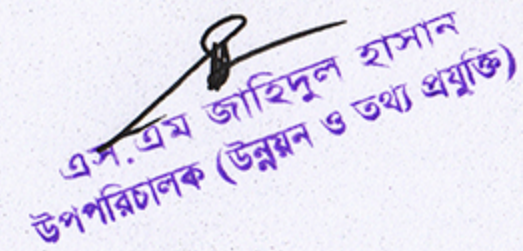 এস.এম জাহিদুল হাসান
উপপরিচালক (উন্নয়ন ও তথ্য প্রযুক্তি)